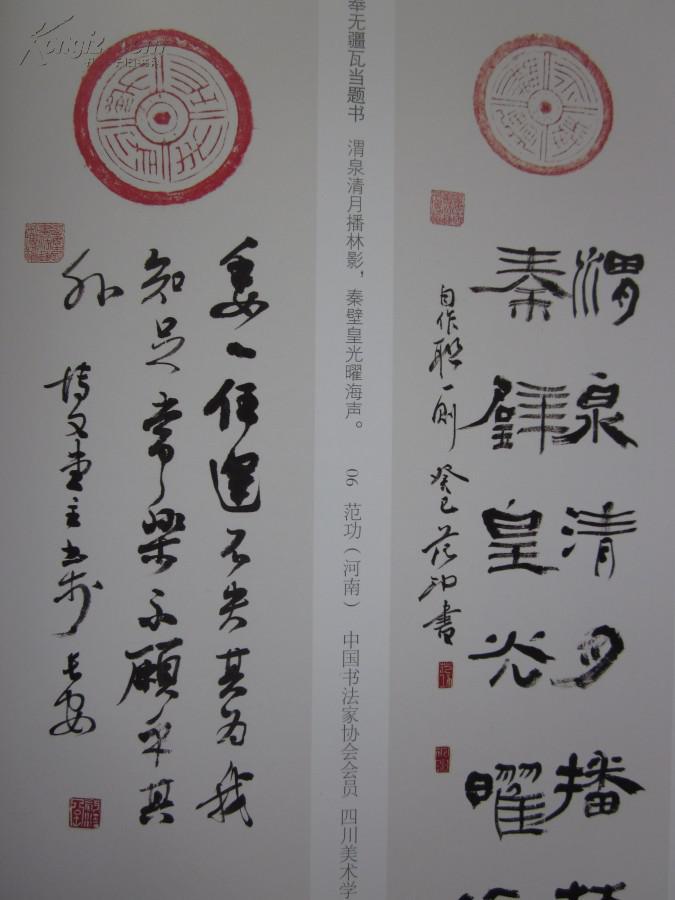 渭泉清月播
秦壁皇光曜
自作联一则 癸巳 范功書
奉无疆瓦当题书 渭泉清月播林影，秦壁皇光曜海声。 06 范功（河南） 中国书法家协会会员 四川美术学
委心任運不失其为我
知足常樂不願乎其
外
博文堂主书於長安